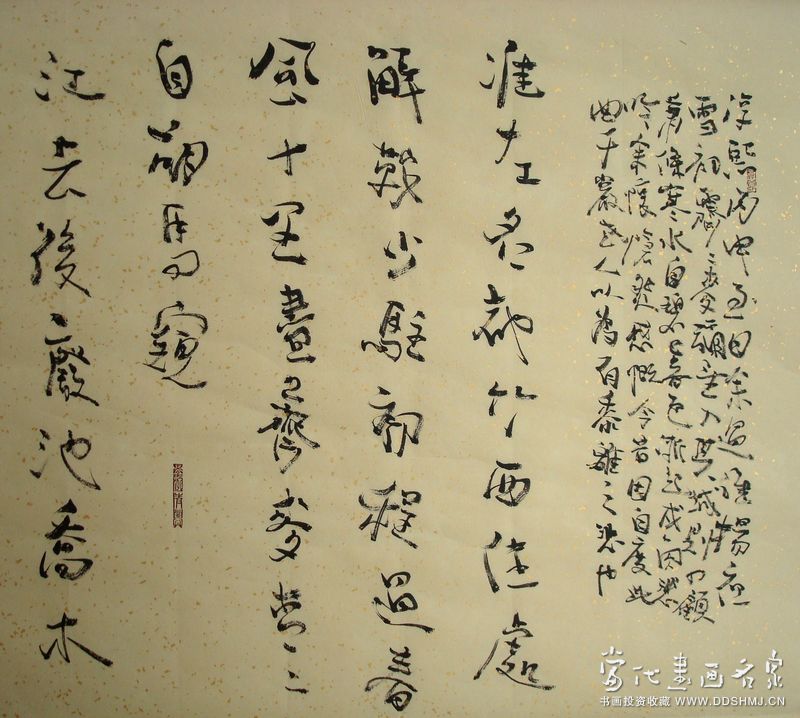 淳熙丙申至日余過維揚夜
雪初霽薺麥彌望入其城則四顧
蕭條寒水自碧暮色漸起戍角悲
吟余懷愴然感慨今昔因自度此
曲千巖老人以為有黍離之悲也
淮左名都竹西佳處
解鞍少駐初程過春
風十里盡薺麥青〻
自胡馬窺
江去後廢池喬木
當代書画名家
书画投资收藏 WWW.DDSHMJ.CN